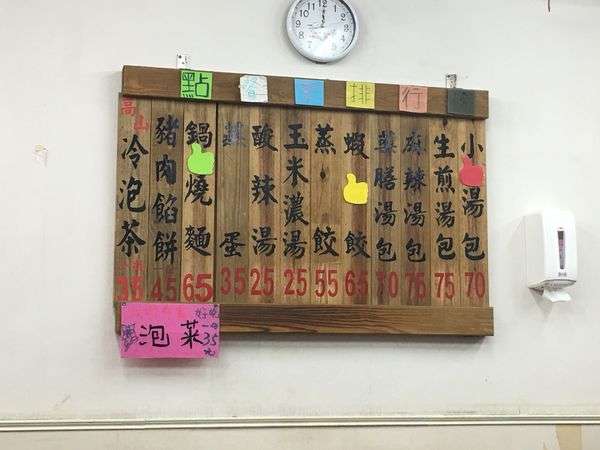 點
排
行
小湯包
70
生煎湯包
75
麻辣湯包
藥膳湯包
70
蝦餃
65
蒸餃
55
玉米濃湯
25
酸辣湯
25
蒸蛋
35
鍋燒麵
65
豬肉餡餅
45
高山冷泡茶
泡菜
35